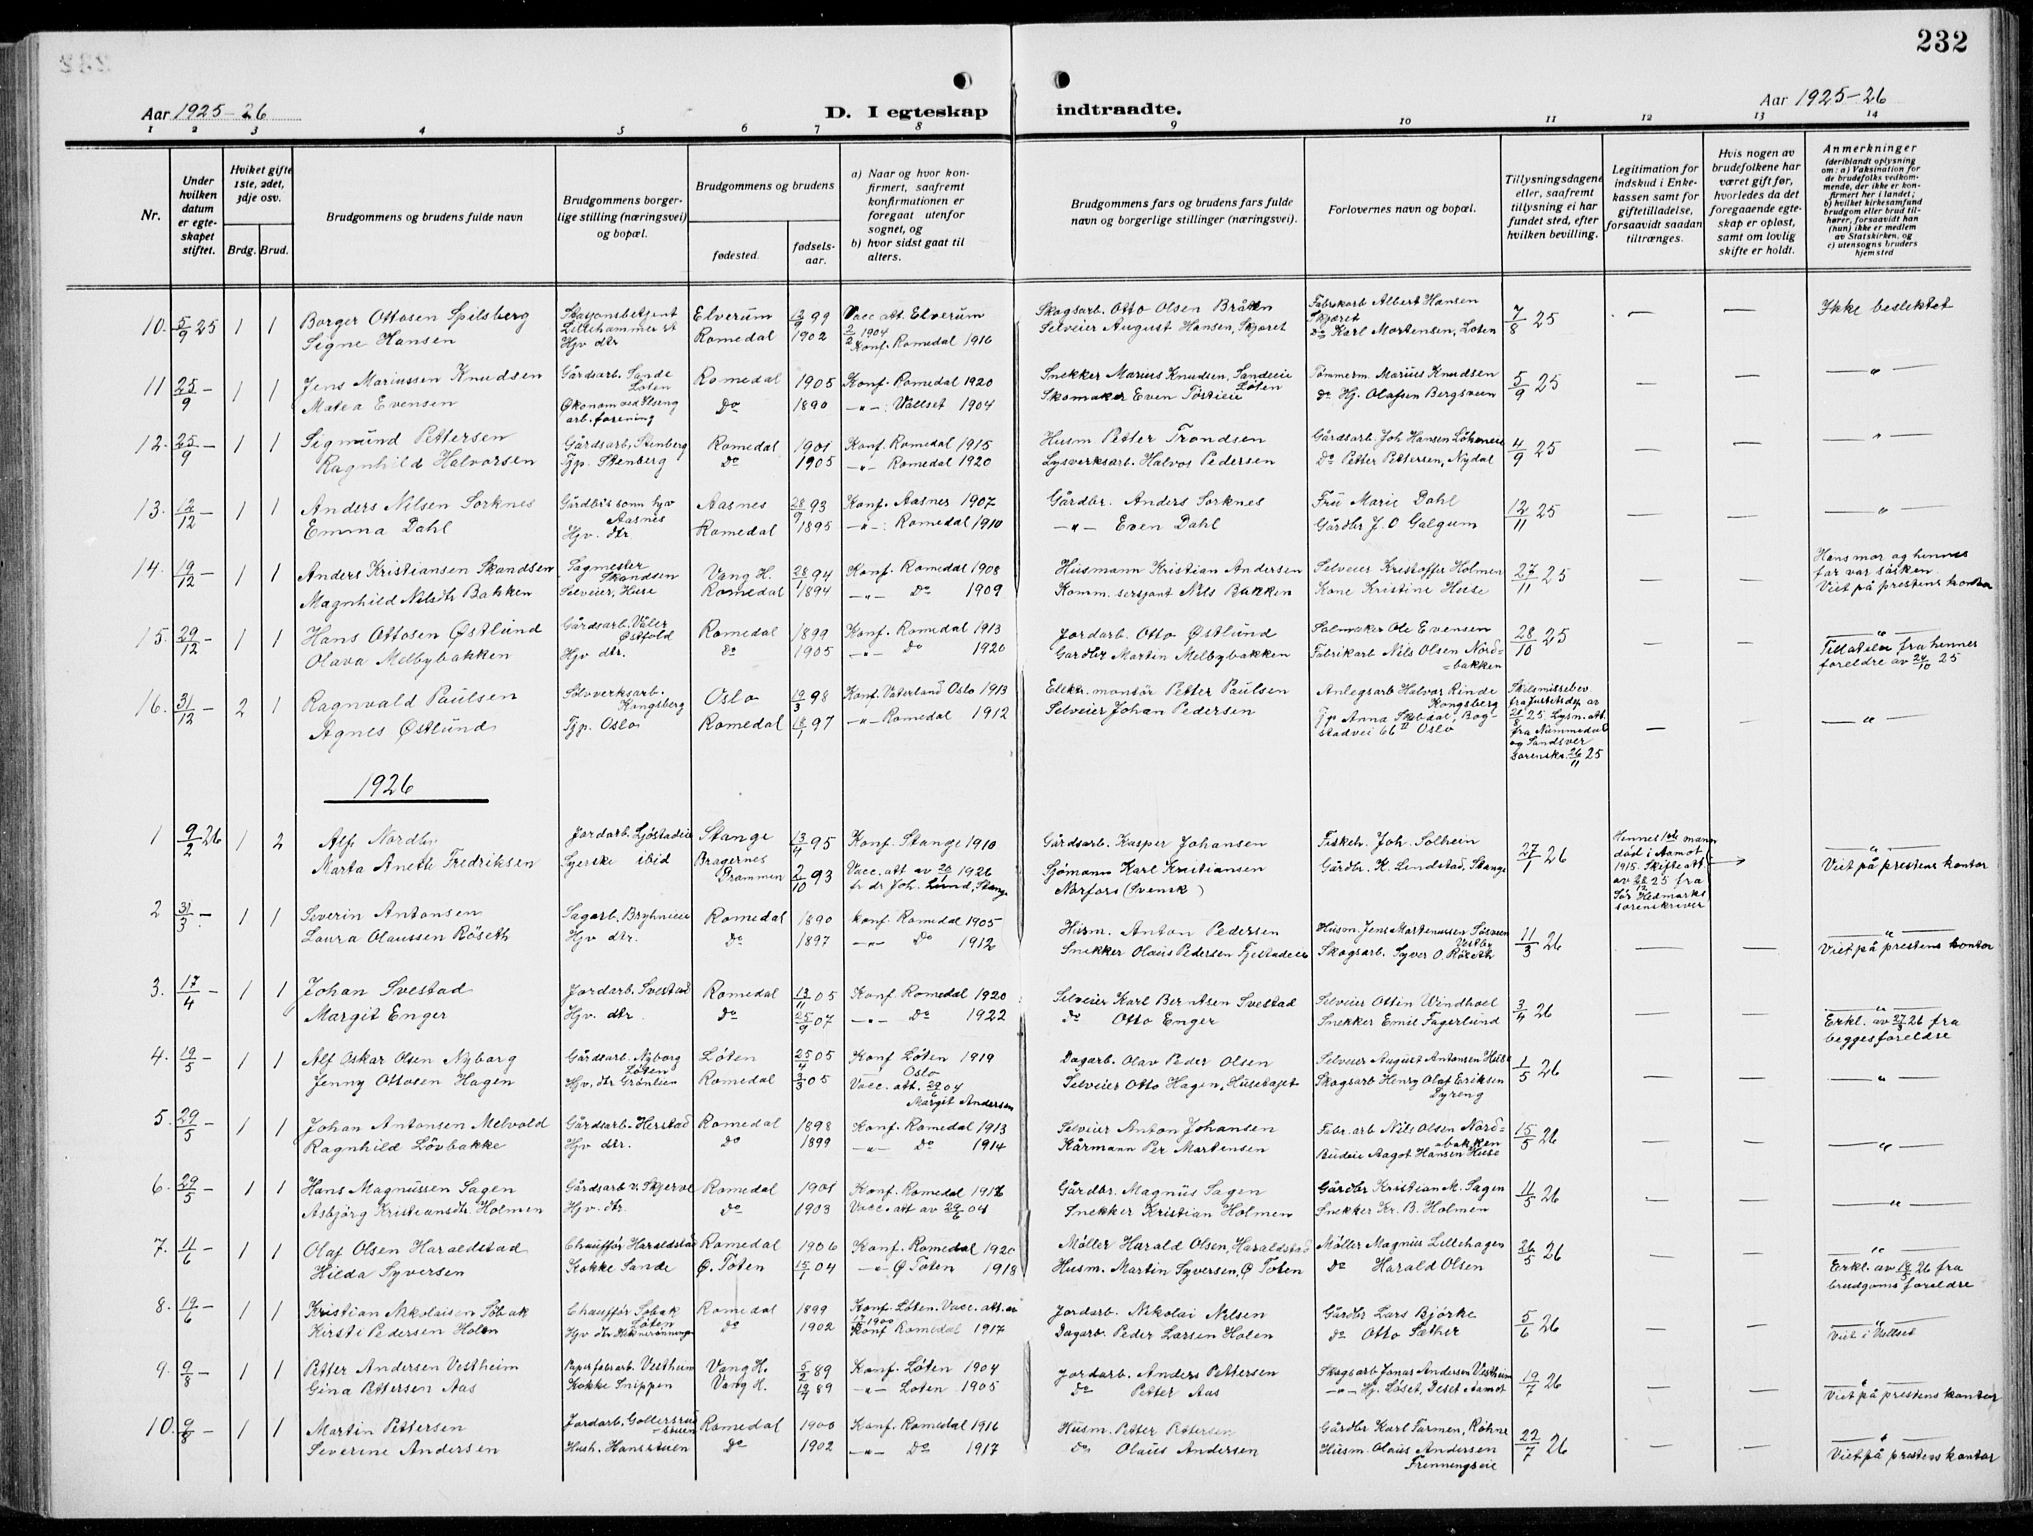 232
Aar 1925-26
D. I egteskap indtraadte.
Aar 1925-26
1 2 3 4 5 6 7 8 9 10 11 12 13 14
Nr.
Under hvilken datum er egteskapet stiftet.
Hviket gifte 1ste, 2det, 3dje osv.
Brdg. Brud.
Brudgommens og brudens fulde navn
Brudgommens borgerlige stilling (næringsvei) og bopæl.
Brudgommens og brudens
fødested.
fødselsaar.
a) Naar og hvor konfirmert, saafremt konfirmationen er foregaat utenfor sognet, og
b) hvor sidst gaat til alters.
Brudgommens fars og brudens fars fulde navn og borgerlige stillinger (næringsvei).
Forlovernes navn og bopæl.
Tillysningsdagene eller, saafremt tillysning ei har fundet sted, efter hvilken bevilling.
Legitimation for indskud i Enkekassen samt for giftetilladelse, forsaavidt saadan tiltrænges.
Hvis nogen av brudefolkene har været gift før, hvorledes da det foregaaende egteskap er opløst, samt om lovlig skifte er holdt.
Anmerkninger
(deriblandt oplysning om: a) Vaksination for de brudefolks vedkommende, der ikke er konfirmert her i landet; b) hvilket kirkesamfund brudgom eller brud tilhører, forsaavidt han (hun) ikke er medlem av Statskirken, og c) utensogns bruders hjemsted
10. 5/9 25 1 1 Borger Ottosen Spilsberg Stasjonsbetjent Elverum 12/9 99 Vacc. att. Elverum Skogsarb. Otto Olsen Bråten Fabrikarb Albert Hansen 7/8 25 — — Ikke beslektet
Signe Hansen Lillehammer st Hjv dtr Romedal 1902 2/2 1904 Konf. Romedal 1916 Selveier August Hansen, Skjæret Skjæret Do Karl Mortensen, Løten
11 25/9 — 1 1 Jens Mariussen Knudsen Gårdsarb. Sande Løten Romedal 1905 Konf. Romedal 1920 Snekker Marius Knudsen, Sandeie Løten Tømmerm. Marius Knudsen 5/9 25 — — — " —
Matea Evensen Økonom ved Ilseng arb.forening Do 1890 —"—: Vallset 1904 Skomaker Even Tostieie do Hj. Olafsen Bergsveen
12. 25/9 — 1 1 Sigmund Pettersen Gårdsarb. Stenberg Romedal 1901 Konf. Romedal 1915 Husm Petter Trondsen Gårdsarb. Joh Hansen 4/9 25 — — — " —
Ragnhild Halvorsen Tjp. Stenberg Do 1905 —"— Romedal 1920 Lysverksarb. Halvor Pedersen Do Petter Pettersen, Nydal
13. 12/12 — 1 1 Anders Nilsen Sorknes Gårdbr.s sønn hjv Aasnes Aasnes 28/9 93 Konf. Aasnes 1907 Gårdbr. Anders Sorknes Frü Marie Dahl 12/11 25 — — — " —
Emma Dahl Hjv. dtr. Romedal 1895 —"—: Romedal 1910 —"— Even Dahl Gårdbr J. O Galgum
14. 19/12 — 1 1 Anders Kristiansen Skandsen Sagmester Skandsen Vang H. 28/1 94 Konf. Romedal 1908 Husmann Kristian Andersen Selveier Kristoffer Holmen 27/11 25 — — Hans mor og hennes far var søsken.
Magnhild Nilsdtr Bakken Selveier, Huse Romedal 1894 —"— Do 1909 Komm. sersjant Nils Bakken Kone Kristine Huse Viet på prestens kontor
15. 29/12 — 1 1 Hans Ottosen Østlund Gårdsarb. Våler Østfold Romedal 1899 Konf. Romedal 1913 Jordarb. Otto Østlund Salmaker Ole Evensen 28/10 25 — — — " —
Olava Melbybakken Hjv dtr. do 1905 —"— Do 1920 Gardbr Martin Melbybakken Fabrikarb Nils Olsen Nordbakken Tillatelse fra hennes foreldre av 24/10 25
16. 31/12 — 2 1 Ragnvald Paulsen Sølvverksarb. Kongsberg Oslo 19/3 98 Konf. Vaterland Oslo 1913 Elektr. montør Petter Paulsen Anlegsarb Halvor Rinde Kongsberg Skilsmissebev fra Justitsdep. av 21/8 25. Lysn. att. fra Nummedal og Sandsver sorenskr. 26/11 25 — — — " —
Agnes Østlund Tjp. Oslo Romedal 18/1 97 —"— Romedal 1912 Selveier Johan Pedersen Tjp Anna Skibdal, Bogstadvei 66 II Oslo
1926
1 9/2 26 1 2 Alf Nordby Jordarb. Ljøstadeie Stange 13/4 95 Konf. Stange 1910 Gårdsarb. Kasper Johansen Fiskeh. Joh. Solheim 27/1 26 Hennes 1ste mann død i Aamot 1915. Skifte att av 28/12 25 fra Sør Hedmarks sorenskriver — " —
Marta Anette Fredriksen Syerske ibid Bragernes Drammen 2/10 93 Vacc. att av 20/1 1926 fr dr Joh. Lund, Stange Sjømann Karl Kristiansen Norfors (Svensk) Gårdbr. K. Lindstad, Stange Viet på prestens kontor
2 31/3 — 1 1 Severin Antonsen Sagarb. Bryhnieie Romedal 1890 konf. Romedal 1905 Husm. Anton Pedersen Husm. Jens Martenussen Vestby 11/3 26 — — — " —
Laura Olaussen Röseth Hjv dtr. Do 1897 —"— Do 1912 Snekker Olaus Pedersen Fjelstadeie Skogsarb. Syver O. Röseth Viet på prestens kontor
3. 17/4 — 1 1 Johan Svestad Jordarb. Svestad Romedal 13/11 05 Konf Romedal 1920 Selveier Karl Berntsen Svestad Selveier Ottin Windhoel 3/4 26 — — — " —
Margit Enger Hjv. dtr. do 25/9 07 —"— Do 1922 do Otto Enger Snekker Emil Fagerlund Erkl. av 27/3 26 fra begges foreldre
4. 19/5 — 1 1 Alf Oskar Olsen Nyborg Gårdsarb. Nyborg Løten Løten 25/4 05 Konf Løten 1919 Dagarb. Olav Peder Olsen Selveier August Antonsen Huse 1/5 26 — — — " —
Jenny Ottosen Hagen Hjv. dtr Grönlien Romedal 3/3 05 Oslo Vacc. att. 29/6 04 Margit Andersen Selveier Otto Hagen, Husebajet Skogsarb Henry Olaf Eriksen Dyreng
5. 29/5 — 1 1 Johan Antonsen Melvold Gårdsarb. Herstad Romedal 1898 Konf. Romedal 1913 Selveier Anton Johansen Fabr. arb Nils Olsen Nordbakken 15/5 26 — — — " —
Ragnhild Lövbakke Hjv dtr. do 1899 —"— Do 1914 Kårmann Per Martensen Budeie Aagot Hansen Huse
6. 29/5 — 1 1 Hans Magnussen Sagen Gårdsarb v. Skjerve Romedal 1901 Konf. Romedal 1916 Gårdbr. Magnus Sagen Gårdbr Kristian M. Sagen 11/5 26 — — — " —
Asbjörg Kristiansdtr. Holmen Hjv. dtr. do 1903 Vacc. att av 29/6 04 Snekker Kristian Holmen Snekker Kr. B. Holmen
7. 4/6 — 1 1 Olaf Olsen Haraldstad Chauffør Haraldstad Romedal 1906 Konf. Romedal 1920 Møller Harald Olsen, Haraldstad Møller Magnus Lillehagen 26/5 26 — — — " —
Hilda Syversen Kokke Sande Ø. Toten 15/1 04 —"— Ø Toten 1918 Husm. Martin Syversen, Ø Toten do Harald Olsen Erkl. av 18/5 26 fra brudgoms foreldre
8. 19/6 — 1 1 Kristian Nikolaisen Søbak Chauffør Søbak Løten Romedal 1899 Konf. Løten. Vacc. att. av Jordarb. Nikolai Nilsen Gårdbr Lars Björke 5/6 26 — — — " —
Kirsti Pedersen Holen Hjv dtr do 1902 Konf Romedal 1917 Dagarb. Peder Larsen Holen do Otto Sæther Viet i Vallset
9. 9/8 — 1 1 Petter Andersen Vestheim Papirfabrarb. Vestheim Vang H. 5/2 89 Konf. Løten 1904 Jordarb. Anders Pettersen Skogsarb Jonas Andersen Vestheim 19/7 26 — — — " —
Gina Pettersen Aas Kokke Snippen Vang H. 12/7 89 —"— Løten 1905 do Petter Aas —"— Hj. Løset, Deset Aamot Viet på prestens kontor
10. 9/8 — 1 1 Martin Pettersen Jordarb. Gollersrudstuen Romedal 1900 Konf. Romedal 1916 Husm. Petter Pettersen Gårdbr Karl Farmen, Røhne 22/7 26 — — — " —
Severine Andersen Hush. Hansstuen do 1902 —"— Do 1917 do Olaus Andersen Husm. Olaus Andersen Frenningseie Viet på prestens kontor